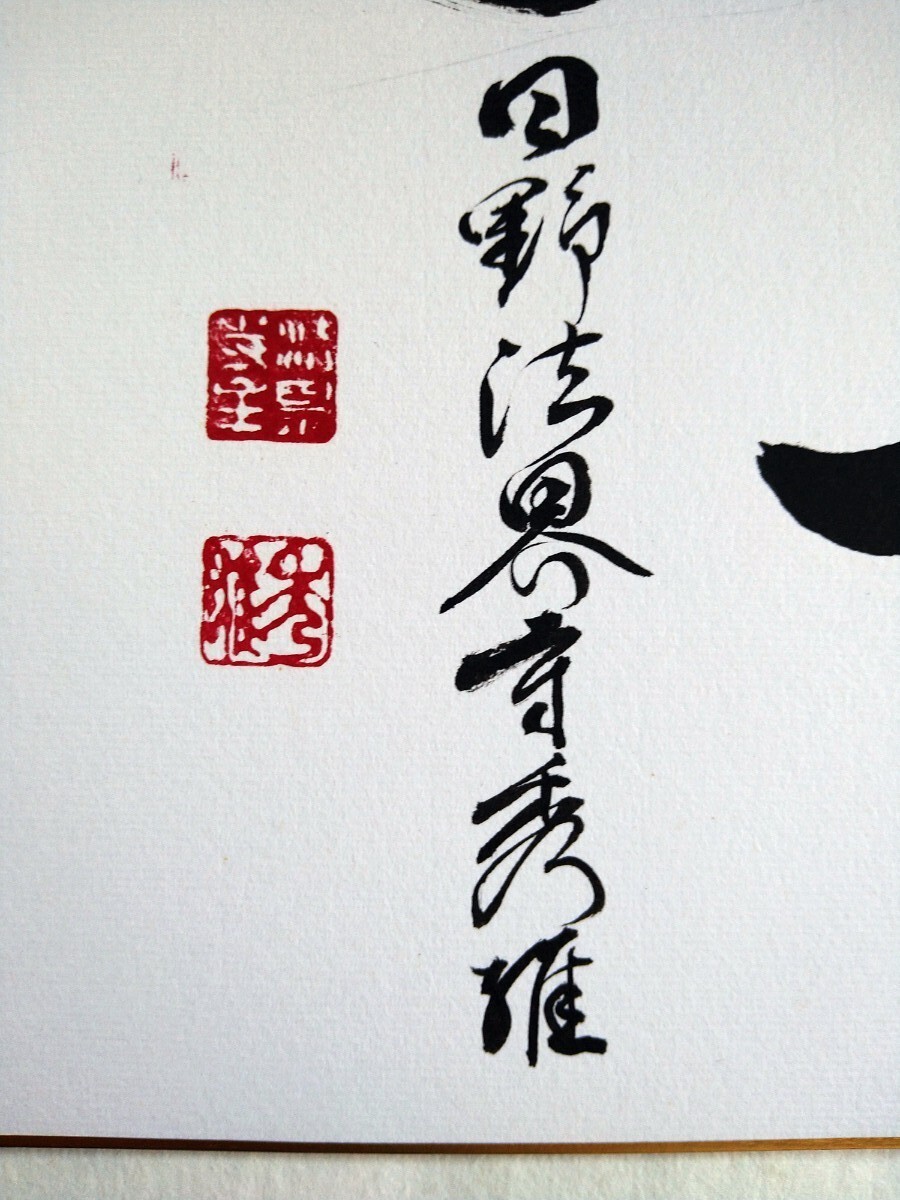 日野法界寺秀雄